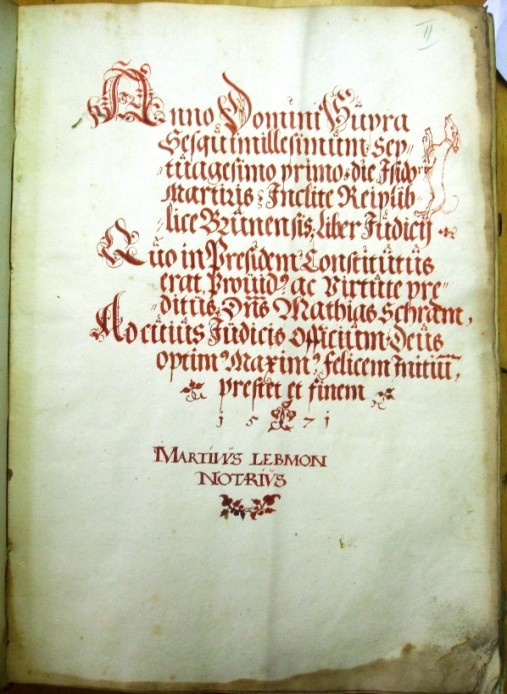 II
Anno Domini Supra
Sesquimillesimum Sep-
tuagesimo primo die Isidori
Martiris Inclite Reipub-
lice Brunensis Liber Judicij
Quo in Presidem Constitutus
erat Provid9 ac Virtute pre-
ditus Dns Mathias Schram,
Ad cuius Judicis Officium Deus
optim9 Maxim9 felicem Initiu,
prestet et finem
1571
MARTINVS LEBMON
NOTARIVS